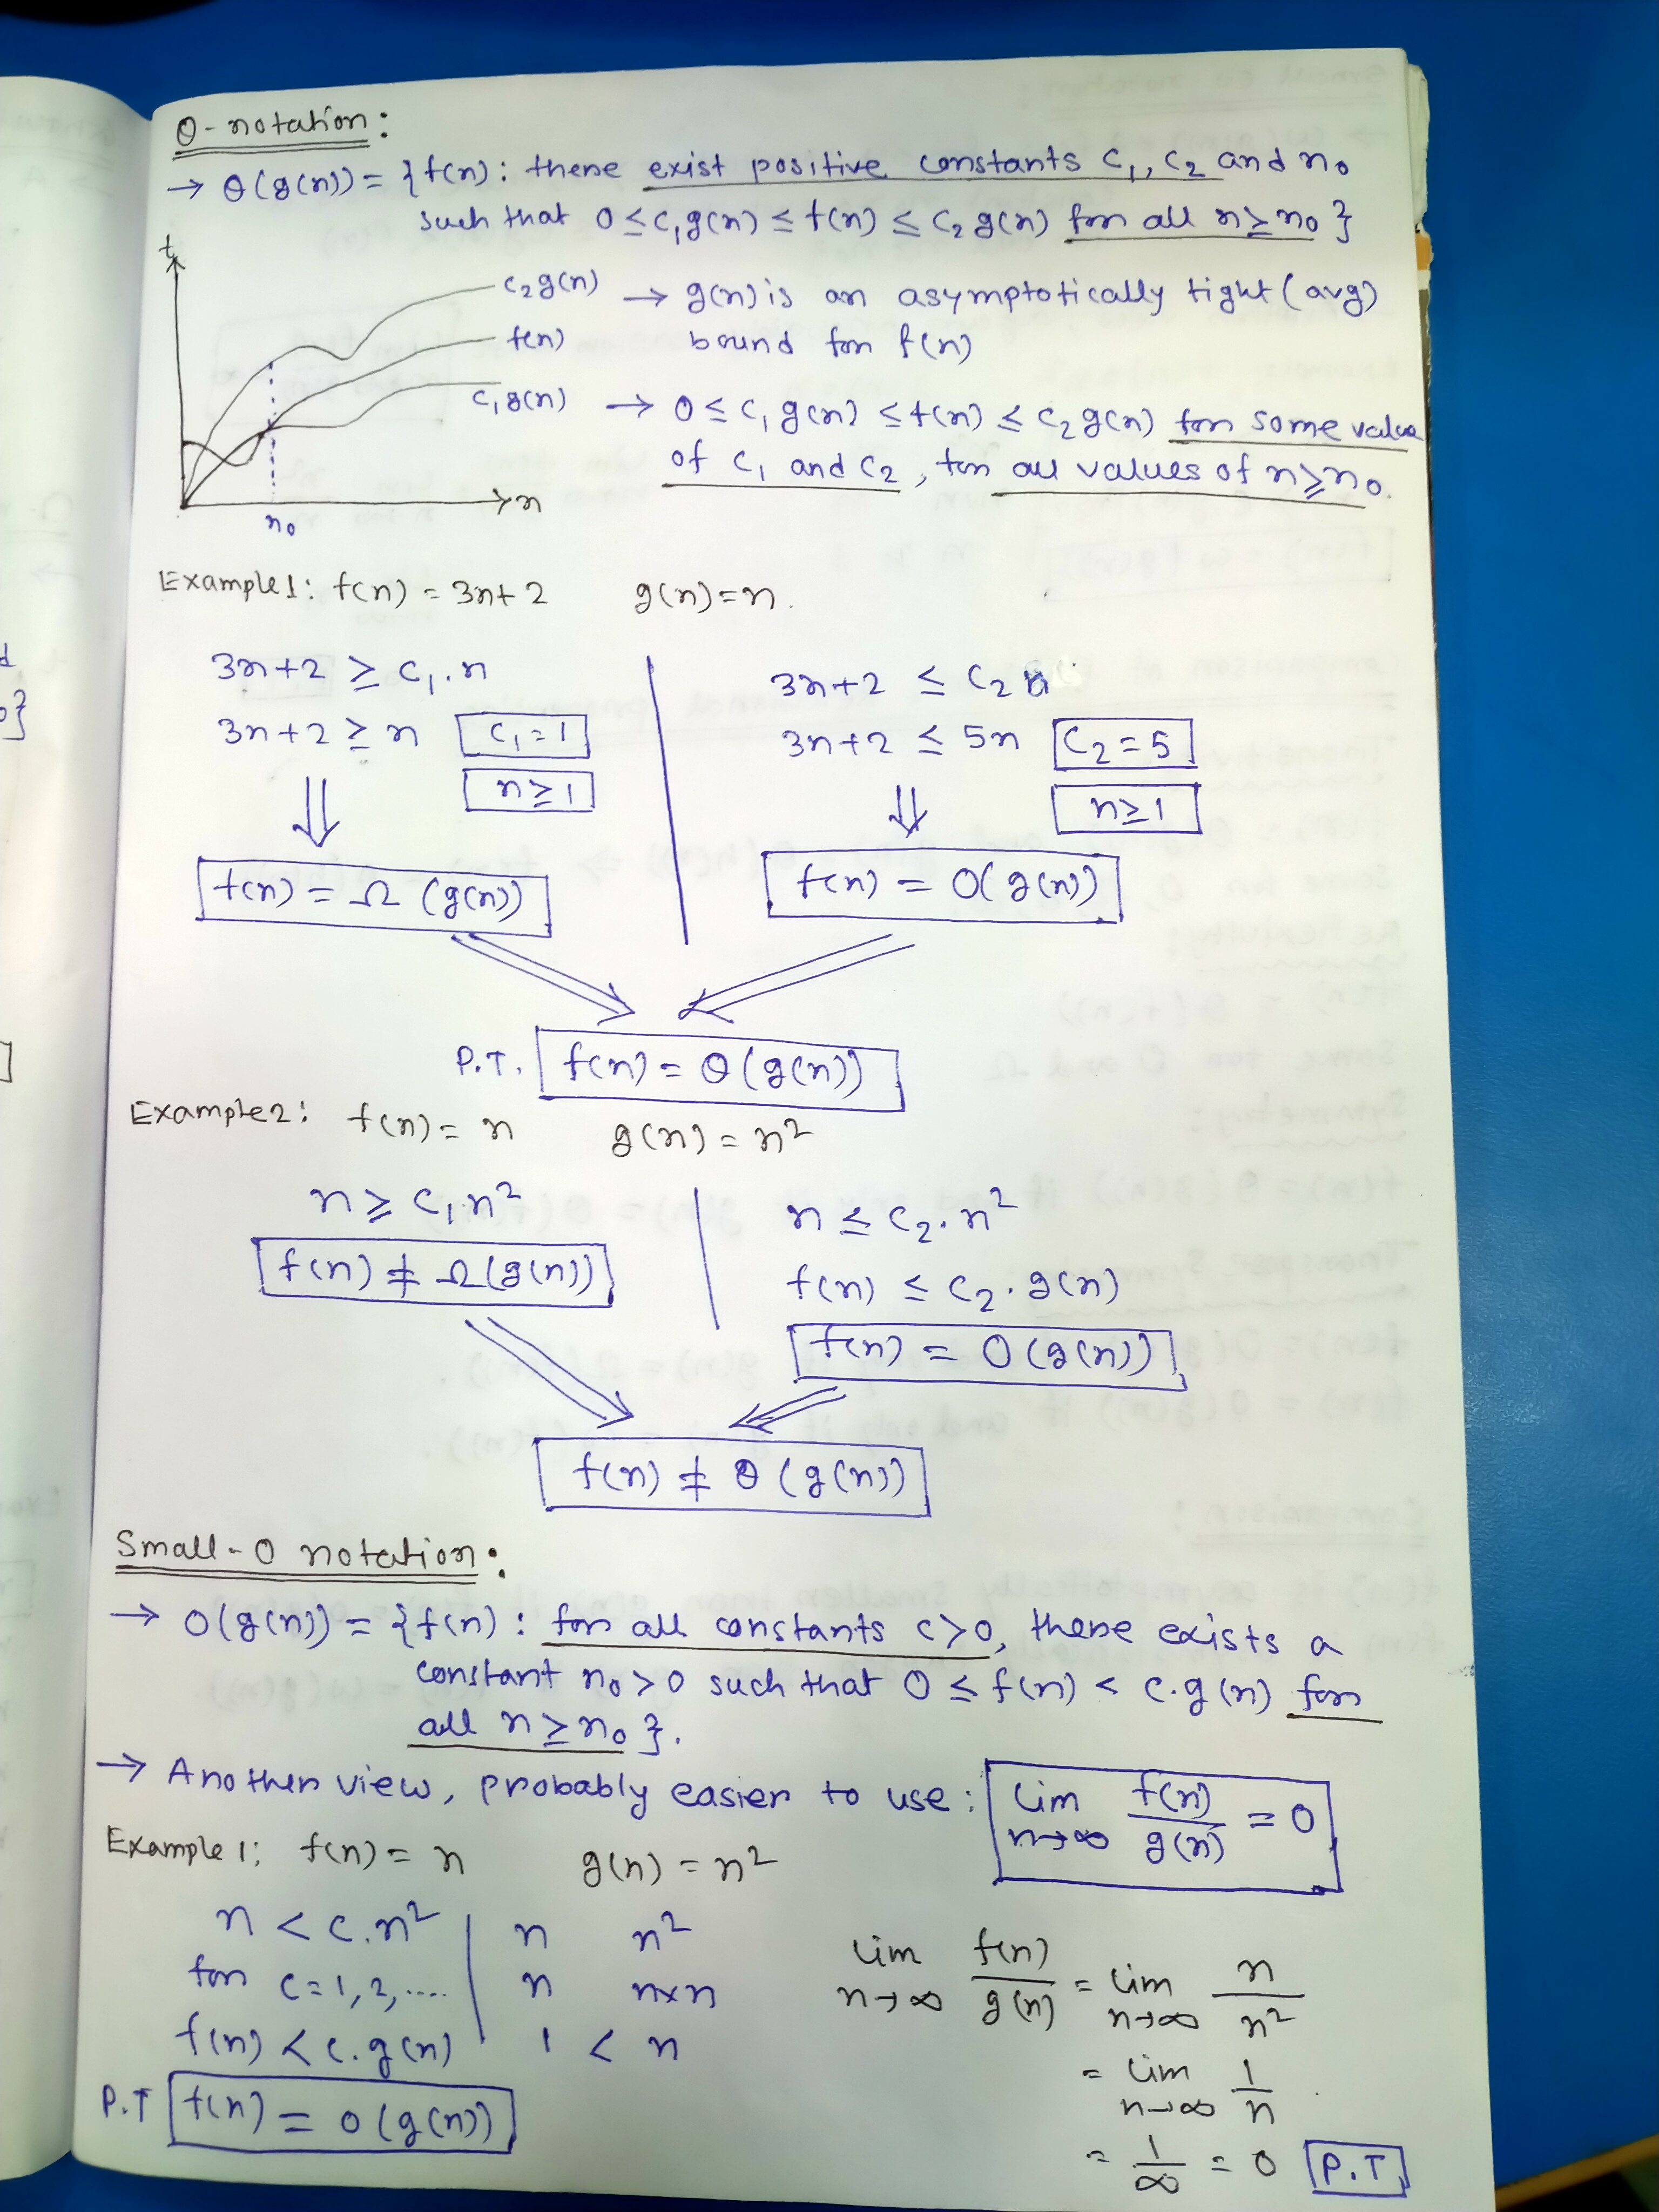 θ-notation:
→ θ(g(n)) = {f(n): there exist positive constants c₁, c₂ and n₀
such that 0 ≤ c₁g(n) ≤ f(n) ≤ c₂g(n) for all n ≥ n₀}
t
c₂g(n) → g(n) is an asymptotically tight (avg)
f(n) bound for f(n)
c₁g(n) → 0 ≤ c₁g(n) ≤ f(n) ≤ c₂g(n) for some value
of c₁ and c₂, for all values of n ≥ n₀.
n
n₀
Example1: f(n) = 3n+2 g(n)=n.
3n+2 ≥ c₁.n
3n+2 ≥ n c₁=1
n≥1
⇓
f(n) = Ω(g(n))
3n+2 ≤ c₂ n
3n+2 ≤ 5n c₂=5
n≥1
⇓
f(n) = O(g(n))
P.T. f(n) = θ(g(n))
Example2: f(n) = n g(n) = n²
n ≥ c₁n²
f(n) ≠ Ω(g(n))
n ≤ c₂.n²
f(n) ≤ c₂.g(n)
f(n) = O(g(n))
f(n) ≠ θ(g(n))
Small-o notation:
→ o(g(n)) = {f(n): for all constants c>0, there exists a
constant n₀>0 such that 0 ≤ f(n) < c.g(n) for
all n ≥ n₀}.
→ Another view, probably easier to use: lim n→∞ f(n)/g(n) = 0
Example1: f(n) = n g(n) = n²
n < c.n²
for c=1,2,....
f(n) < c.g(n)
P.T f(n) = o(g(n))
n n²
n n×n
1 < n
lim n→∞ f(n)/g(n) = lim n→∞ n/n²
= lim n→∞ 1/n
= 1/∞ = 0 P.T